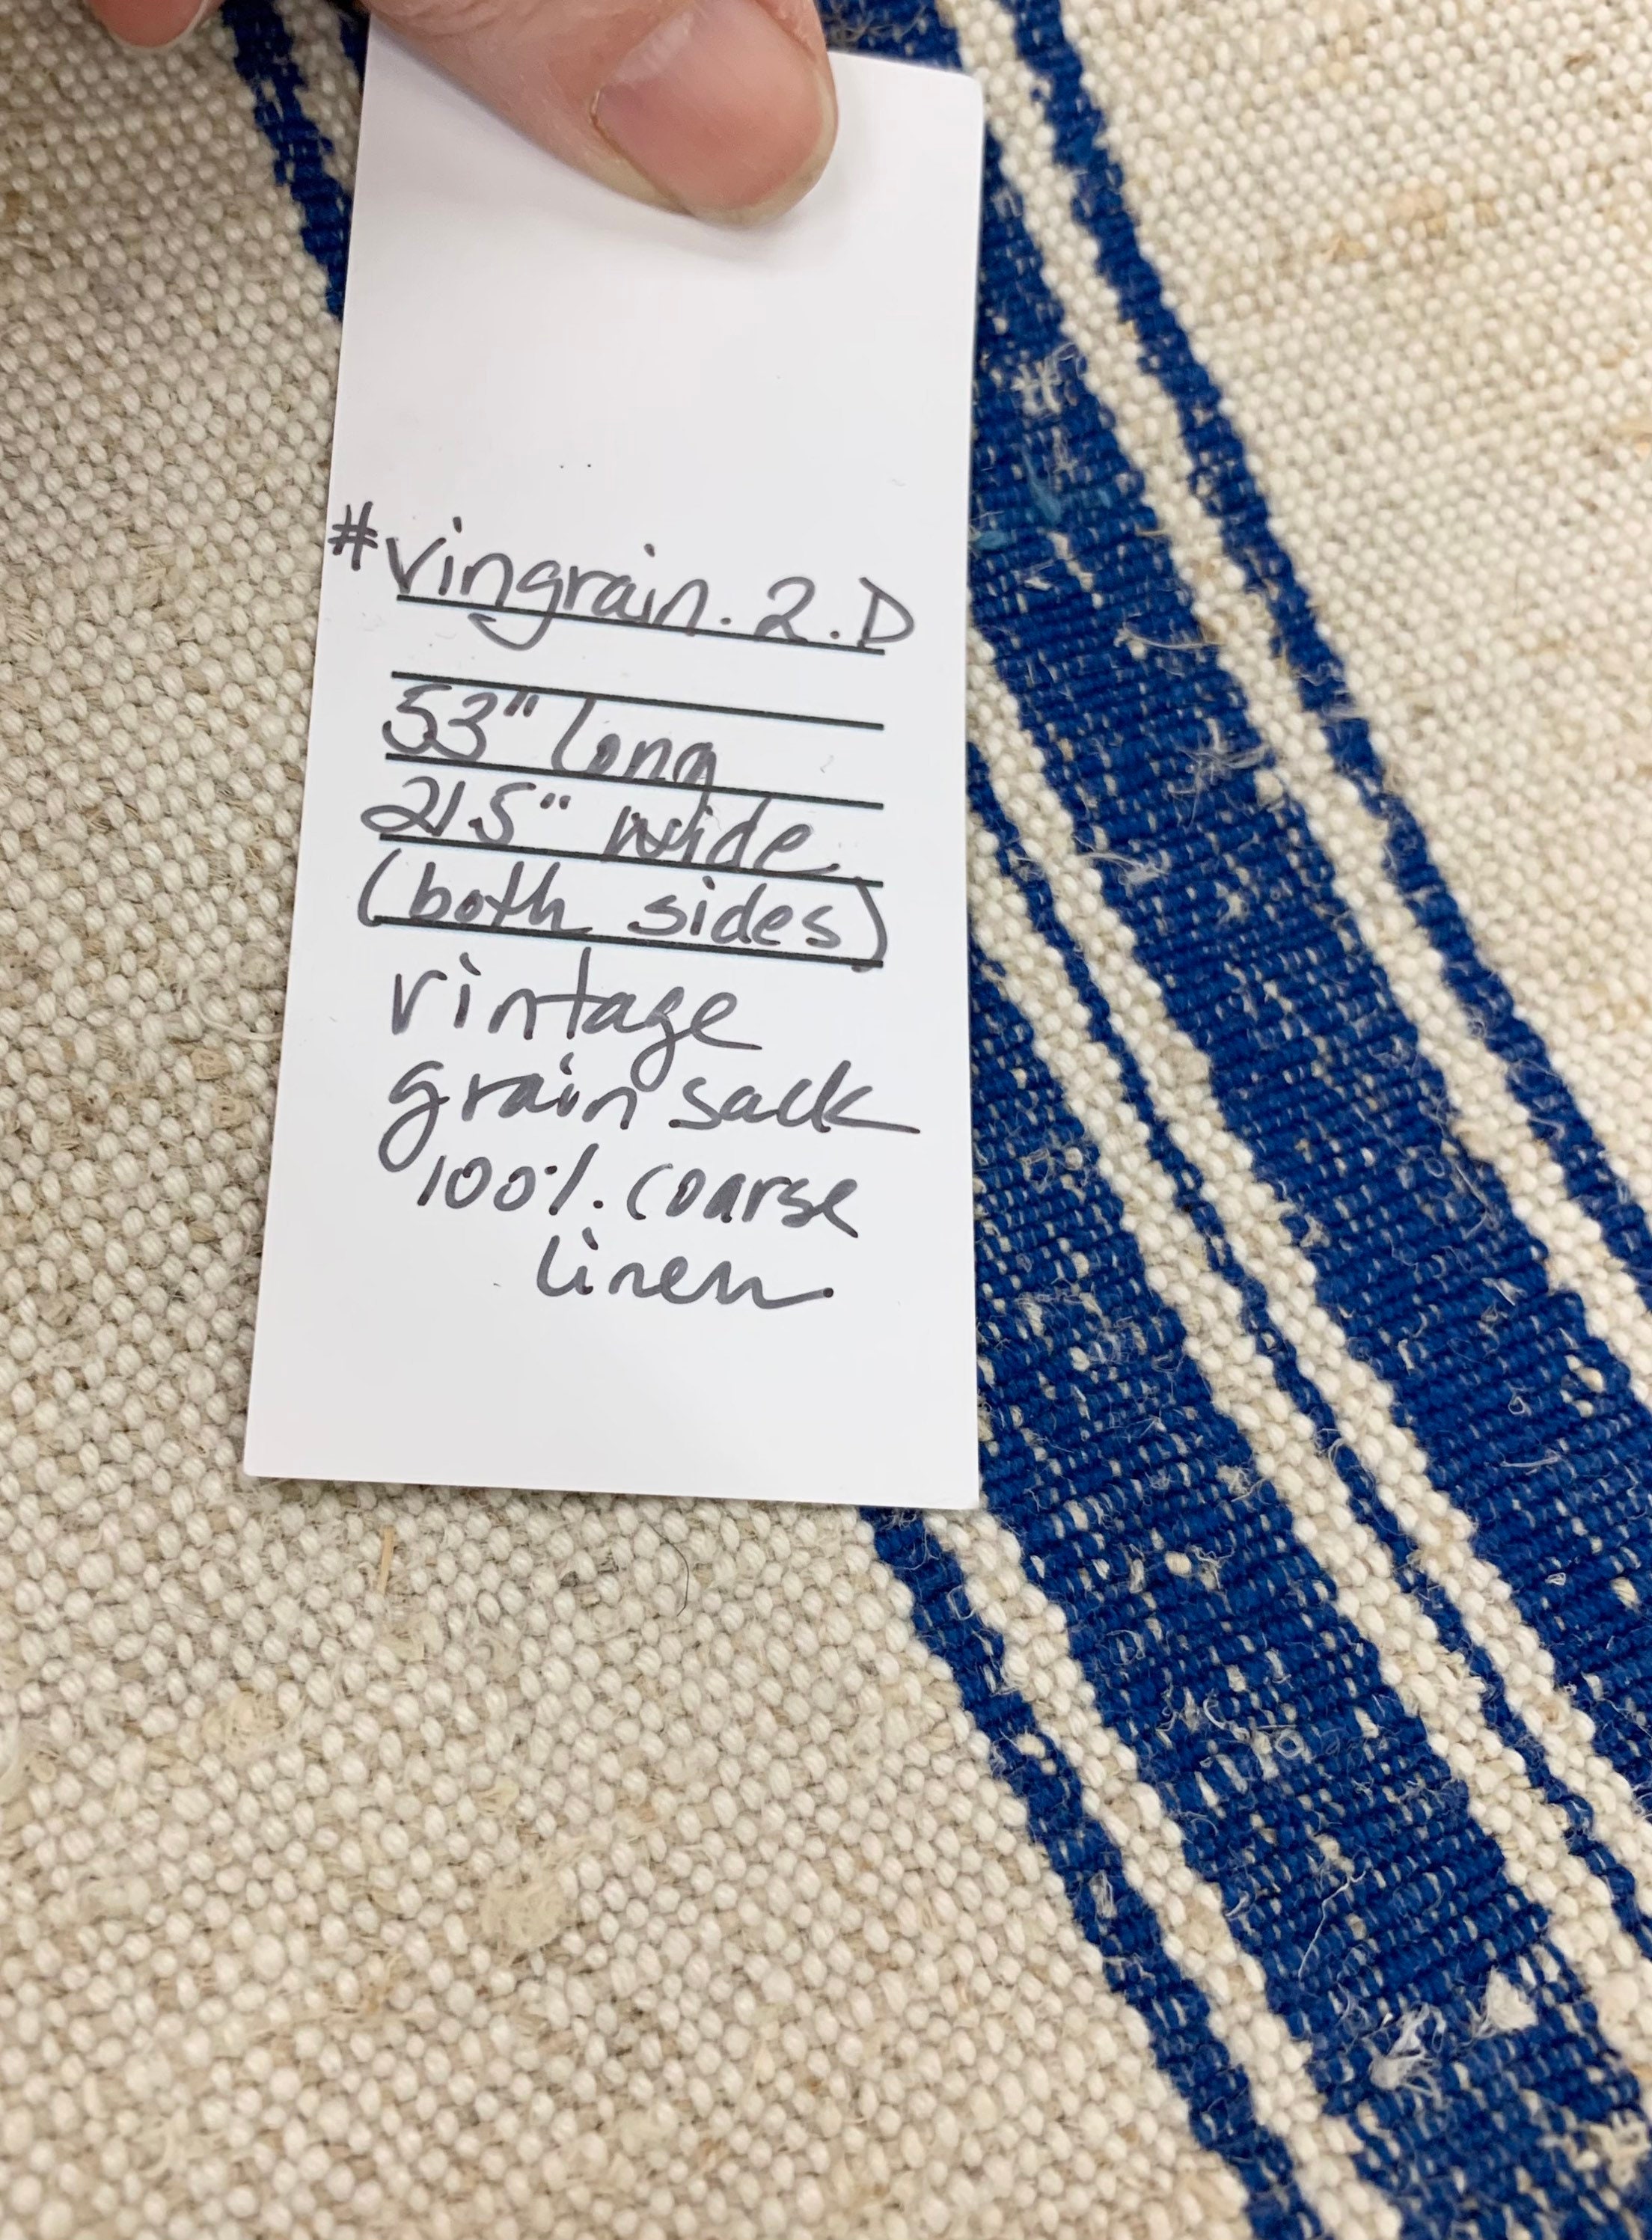 #vingrain.2.D
53" long
21.5" wide
(both sides)
vintage
grain sack
100% coarse
linen.